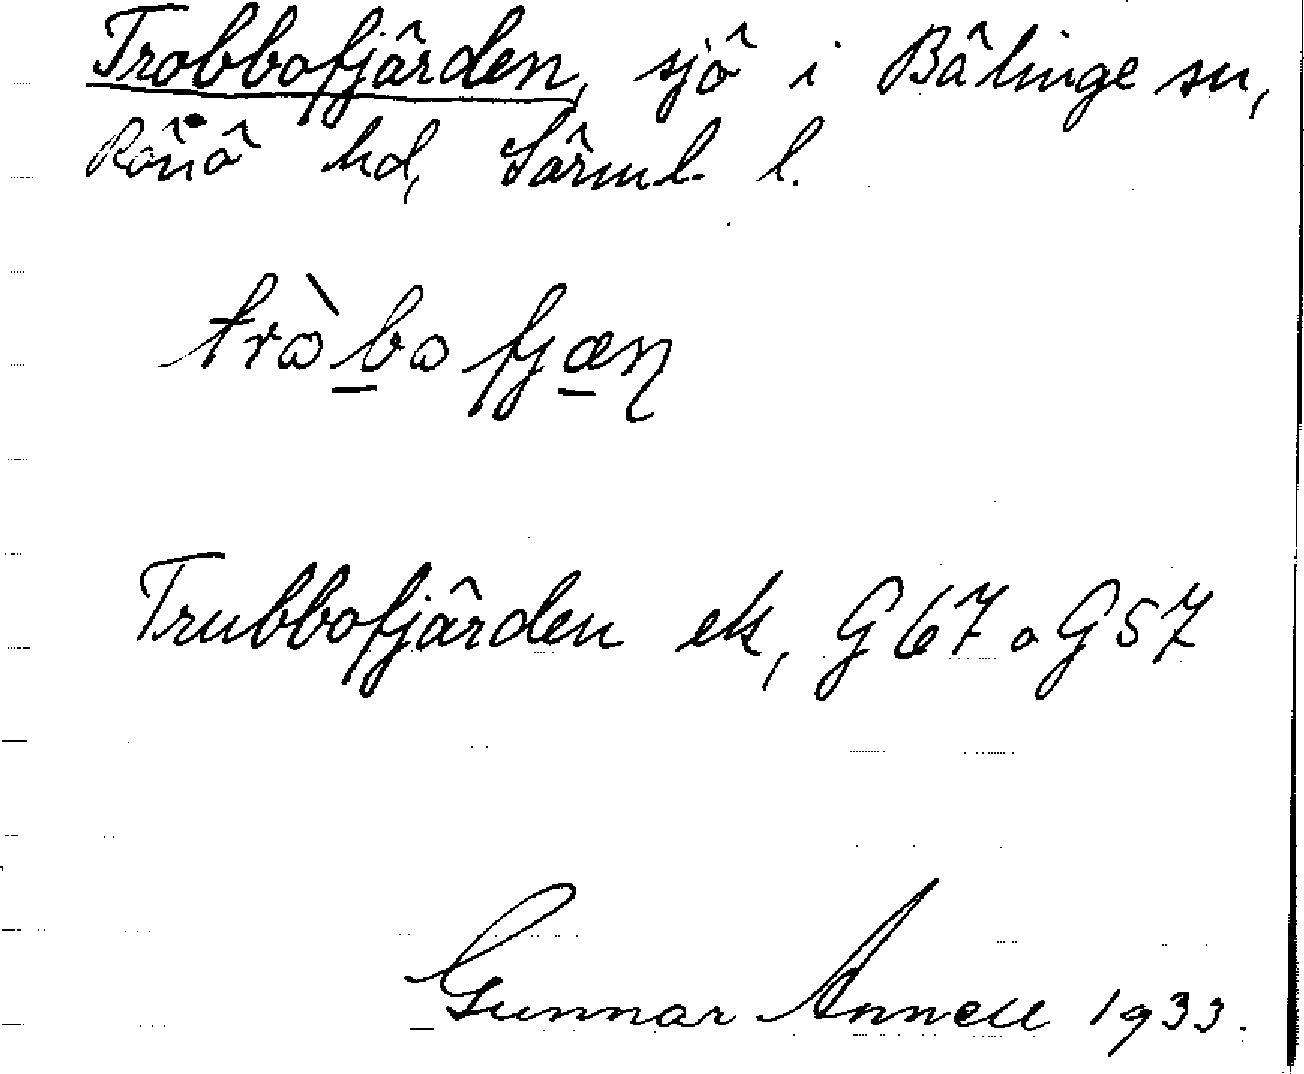 Trobbofjärden, sjö i Bälinge sn,
Rönö hd, Södml. l.
trɷ̀bɷfjæɳ
Trubbofjärden ek, G67 o G57
Gunnar Annell 1933.